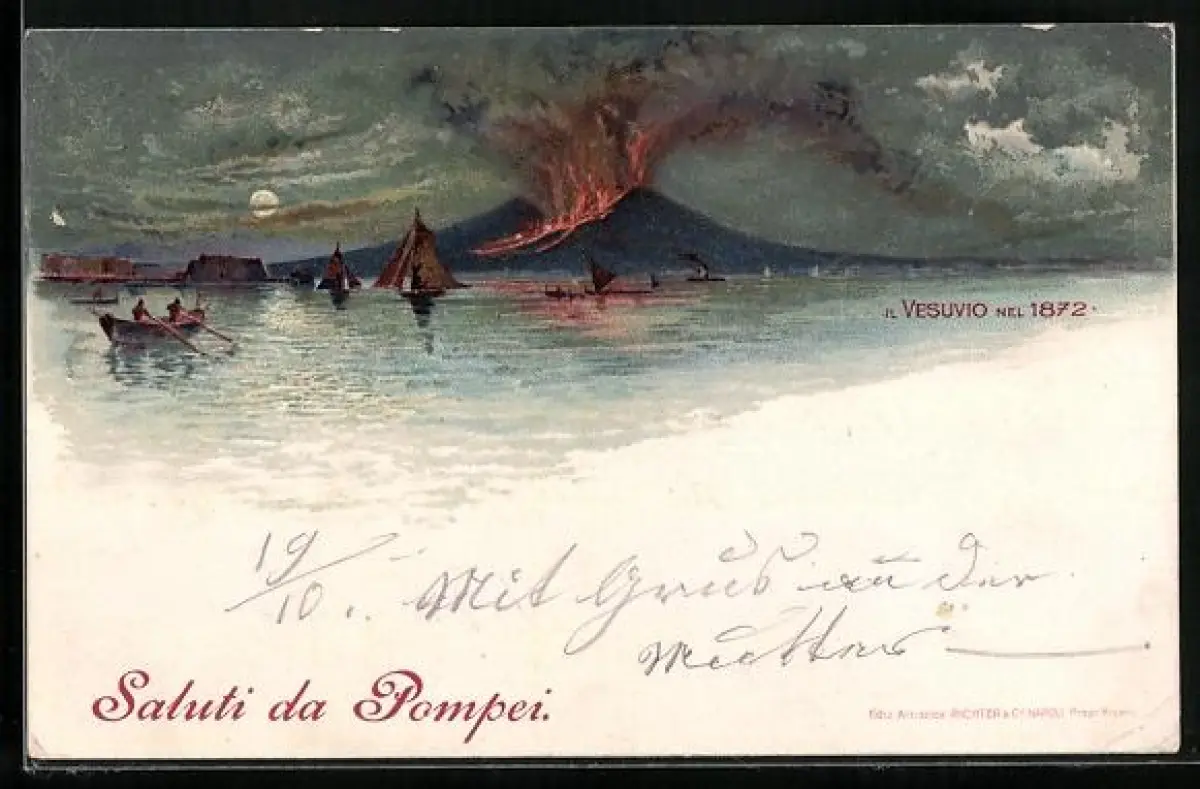 IL VESUVIO NEL 1872.
19/10. Mit Gruss an der
Mutter
Saluti da Pompei.
RICHTER & Cº NAPOLI